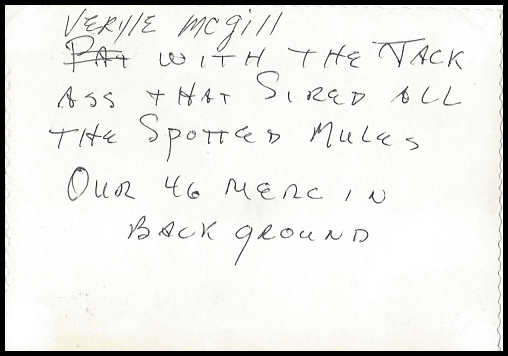 VERYLE McGill
PAT WITH THE JACK
ASS THAT SIRED ALL
THE SPOTTED MULES
OUR 46 MERC IN
BACK GROUND